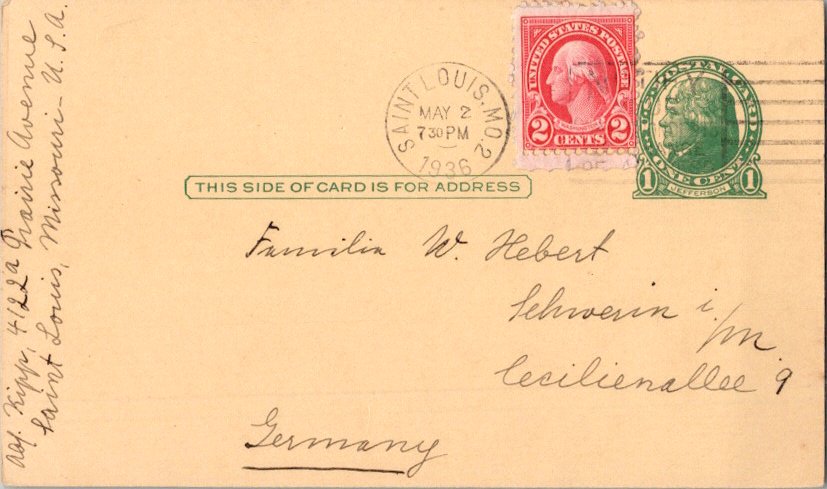 Abs. Kipp, 4122a Prairie Avenue
Saint Louis, Missouri - U.S.A.
SAINT LOUIS, MO. 2
MAY 2
7 30 PM
1936
UNITED STATES POSTAGE
WASHINGTON
2 CENTS 2
U.S. POSTAL CARD
ONE CENT
1 JEFFERSON 1
THIS SIDE OF CARD IS FOR ADDRESS
Familie W. Hebert
Schwerin i/M
Cecilienallee 9
Germany